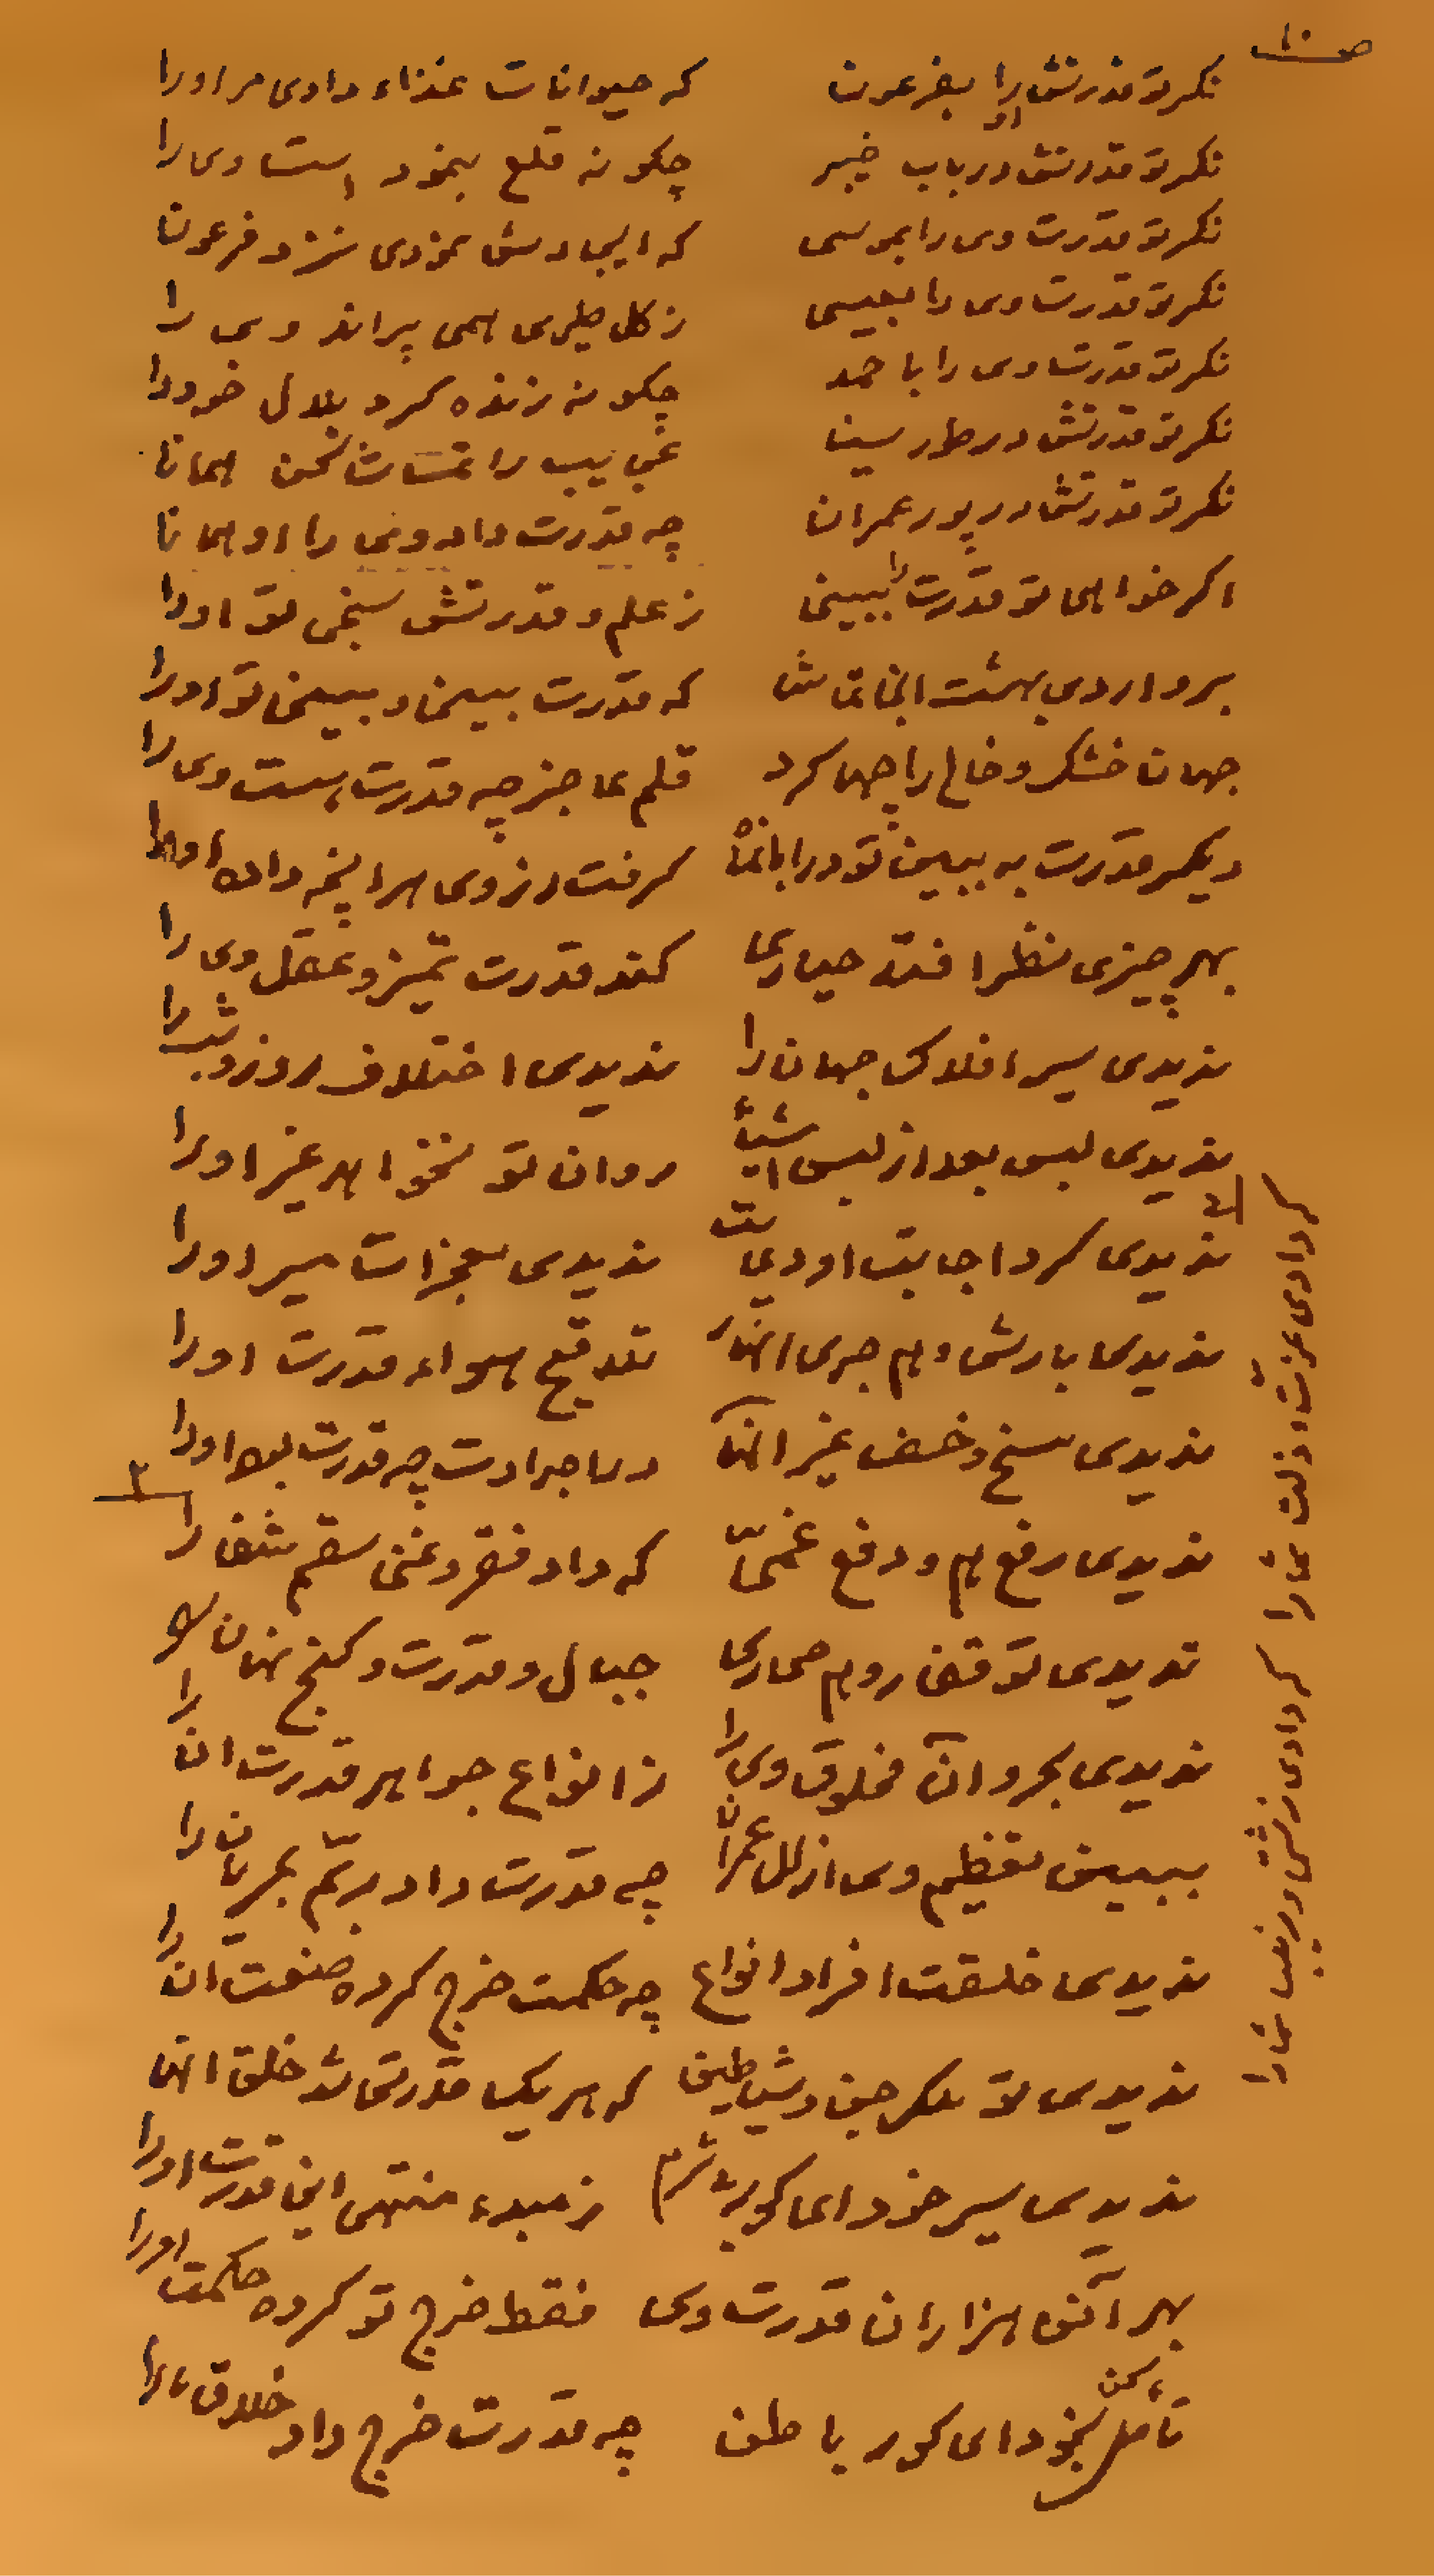 ص ۱۰
نکر تو قدرتش را بفرعون که حیوانات غذاء دادی مر اورا
نکر تو قدرتش در باب خیبر چکونه قلع بنمود است وی را
نکر تو قدرت وی را بموسی که ایجادش نمودی نزد فرعون
نکر تو قدرت وی را بعیسی ز کل طیری همی پراند وی را
نکر تو قدرت وی را باحمد چکونه زنده کرد بلال خود را
نکر تو قدرتش در طور سینا عجایب را تماشا کن همانا
نکر تو قدرتش در پور عمران چه قدرت داد وی را او همانا
اکر خواهی تو قدرت را ببینی ز علم و قدرتش سنجی تو اورا
برو اردیبهشت ان که قدرت بینی و ببینی تو اورا
جهان خشک و خالی را چها کرد قلم عاجز چه قدرت هست وی را
دیکر قدرت به ببین تو در ابانماه کرفت از وی هر انچه داده اورا
بهر چیزی نظر افتد حیاری کند قدرت تمیز و عقل وی را
ندیدی سیر افلاک جهان را ندیدی اختلاف روز و شب را
ندیدی لبس بعد از لبس اشیاء روان تو نخواهد غیر اورا
ندیدی کرد اجابت او دعایت ندیدی معجزات میر اورا
ندیدی بارش و هم جری انهار تقدقیع هواء قدرت اورا
ندیدی مسخ و خسف غیر انها در ما جرادت چه قدرت بود اورا
۲
ندیدی رفع هم و دفع غمها که داد فقر و غنی سقم شفا را
ندیدی تو قفار و هم صحاری جبال و قدرت و کنج نهان را
ندیدی بحر و ان مخلوق وی را ز انواع جواهر قدرت ان را
ببین تعظیم وی از لل عمران چه قدرت داد بر تم بحریان را
ندیدی خلقت افراد انواع چه حکمت خرج کرده صنعت ان را
ندیدی تو ملک جن و شیاطین که هر یک قدرتی شد خلق انها
ندیدی سیر خود ای کور بی شرم ز مبدء منتهی این قدرت اورا
بهر آنی هزاران قدرت وی فقط خرج تو کرده حکمت اورا
تأمل کن بخود ای کور باطن چه قدرت خرج داد خلاق ما را
کر دادی عزت و ذلت شما را کر دادی زشتی و زیب شما را